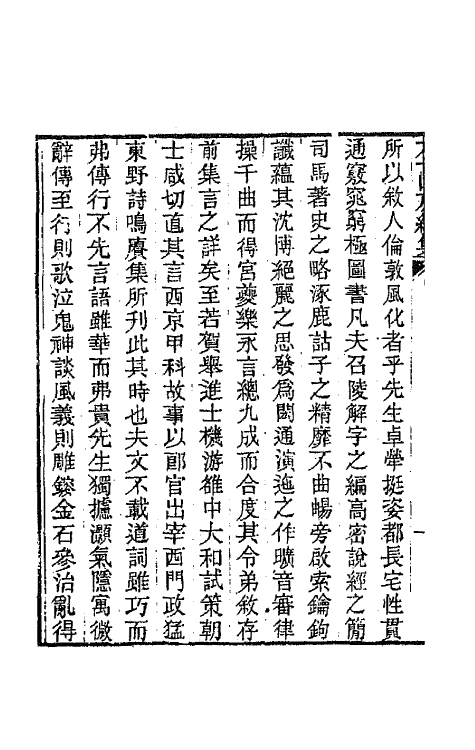 所以敘人倫敦風化者乎先生卓犖挺姿都長宅性貫
通竅窕窮極圖書凡夫召陵解字之編高密說經之簡
司馬著史之略涿鹿詁子之精靡不曲暢旁啟索鑰鉤
讖蘊其沈博絕麗之思發爲閎通演迤之作曠音審律
操千曲而得宮夔樂永言總九成而合度其令弟敘存
前集言之詳矣至若賀舉進士機游雒中大和試策朝
士咸切直其言西京甲科故事以郎官出宰西門政猛
東野詩鳴賡集所刊此其時也夫文不載道詞雖巧而
弗傳行不先言語雖華而弗貴先生獨攄灝氣隱寓微
辭傳至行則歌泣鬼神談風義則雕鎪金石參治亂得